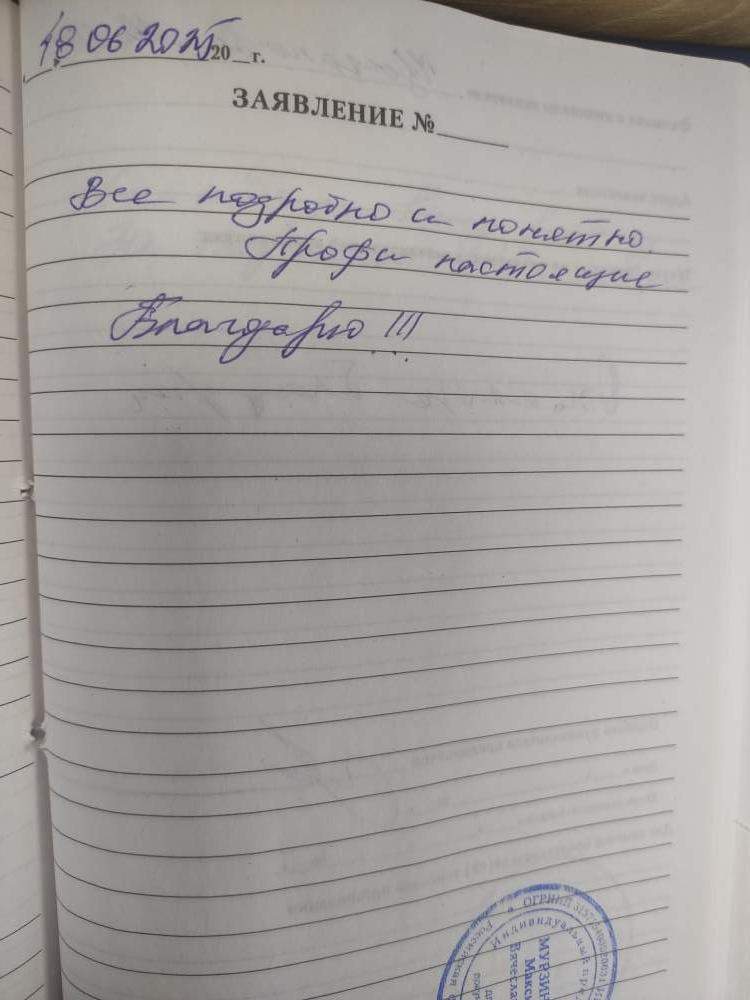 18 06 2025 20__г.
ЗАЯВЛЕНИЕ №
Все подробно и понятно.
Профи настоящие
Благодарю !!!
ОГРНИП
Индивидуальный
Российская
МУРЗИН
Макси
Вячеслав